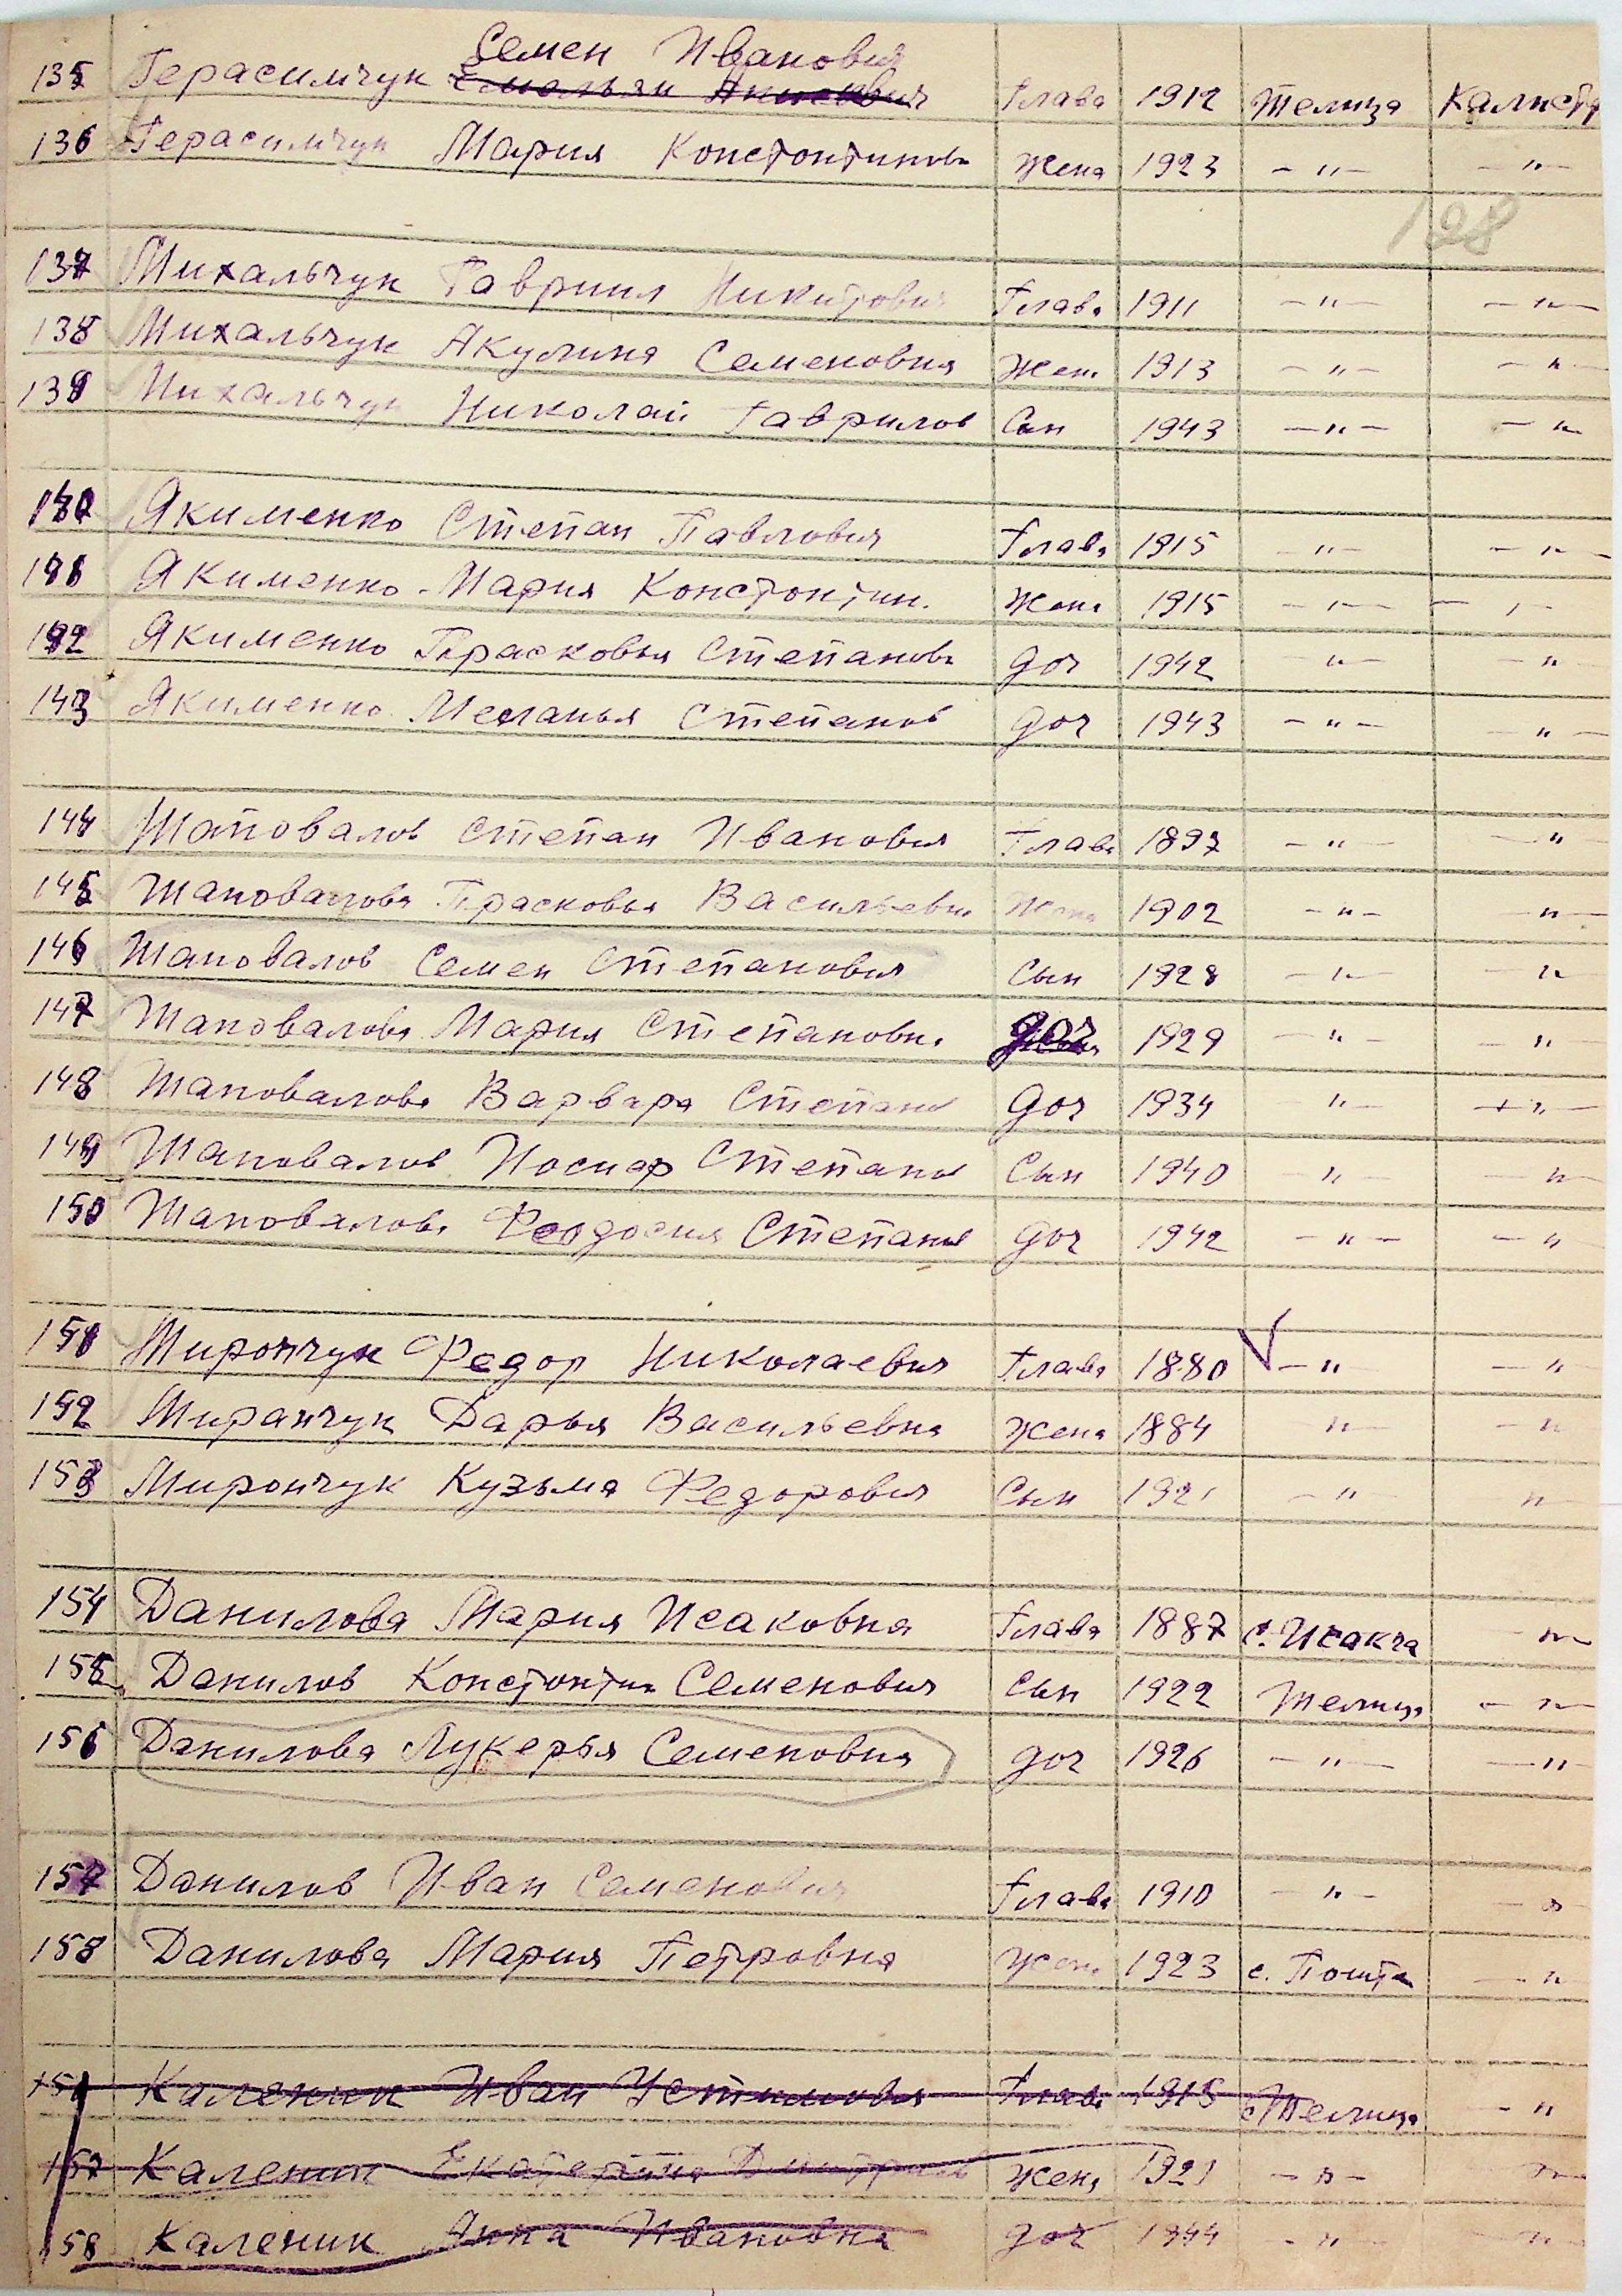 Семен Иванович
135 Герасимчук Емельян Глава 1912 Телица Калиста
136 Герасимчук Мария Констонтиновн Жена 1923 - " - - " -
128
137 Михальчук Гавриил Никитович Глава 1911 - " - - " -
138 Михальчук Акулина Семеновна Жена 1913 - " - - " -
139 Михальчук Николай Гаврилов Сын 1943 - " - - " -
140 Якименко Степан Павлович Глава 1915 - " - - " -
141 Якименко Мария Констонтин. Жена 1915 - " - - " -
142 Якименко Прасковья Степановн доч 1942 - " - - " -
143 Якименко Меланья Степанов доч 1943 - " - - " -
144 Шаповалов Степан Иванович Глава 1897 - " - - " -
145 Шаповалова Прасковья Васильевн Жена 1902 - " - - " -
146 Шаповалов Семен Степанович Сын 1928 - " - - " -
147 Шаповалова Мария Степановн. доч 1929 - " - - " -
148 Шаповалова Варвара Степанов доч 1934 - " - - " -
149 Шаповалов Иосиф Степанов Сын 1940 - " - - " -
150 Шаповалова Феодосия Степанов доч 1942 - " - - " -
151 Мирончук Федор Николаевич Глава 1880 V - " - " 
152 Миранчук Дарья Васильевна Жена 1884 " - - "
153 Мирончук Кузьма Федорович Сын 1921 - " - "
154 Данилова Мария Исаковна Глава 1887 с. Исакча - " -
155 Данилов Констонтин Семенович Сын 1922 Телица - " -
156 Данилова Лукерья Семеновна доч 1926 - " - - " -
157 Данилов Иван Семенович Глава 1910 - " - - " -
158 Данилова Мария Петровна Жена 1923 с. Пошта - " -
Каленик Иван Устимович Глава 1915 с. Телица - "
157 Каленик Екатерина Дмитриев Жена 1921 - " - "
158 Каленик Анна Ивановна доч 1944 - " - "